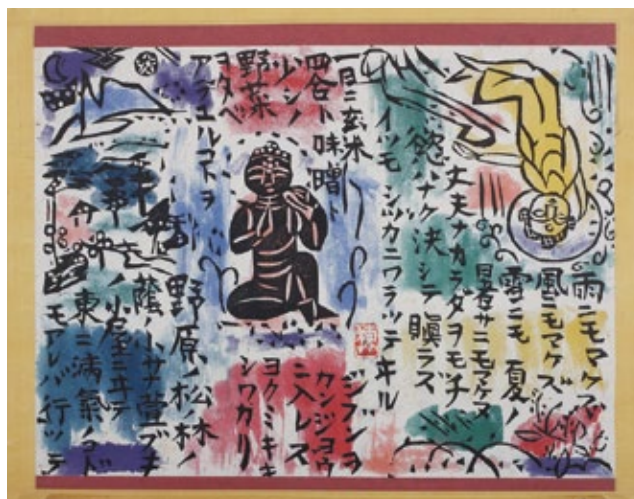 雨ニモマケズ
風ニモマケズ
雪ニモ夏ノ
暑サニモマケヌ
丈夫ナカラダヲモチ
慾ハナク決シテ瞋ラズ
イツモシヅカニワラッテヰル
一日ニ玄米
四合ト味噌ト
少シノ
野菜
ヲタベ
コトヲ
ジブンヲ
カンジョウ
ニ入レズ
ヨクミキキ
シワカリ
野原ノ松ノ林ノ
蔭ノ小サナ萱ブキ
ノ小屋ニヰテ
東ニ病氣ノコド
モアレバ行ッテ